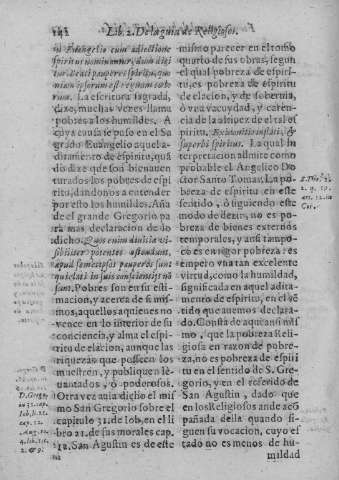 Lib. 2. De la guia de Religiosos.
in Euangelio cum adiectione
spiritus nominentur, dum digi
tur: Beati pauperes spiritu, quo
niam ipsorum est regnum cælo
rum. La escritura sagrada,
dize, muchas vezes llama
pobres a los humildes. A
cuya causa se puso en el Sa
grado Euangelio aquel a-
ditamento de espiritu, quã
do dize que son bienauen
turados los pobres de espi-
ritu, dandonos a entender
por esto los humildes. Aña
de el grande Gregorio pa
ra mas declaracion de lo
dicho. Quos enim diuitia vi-
sibiliter potentes ostendunt,
apud semetipsos pauperes sunt
qui elati in suis conscientijs nõ
sunt. Pobres son en su esti-
macion, y acerca de si mis-
mos, aquellos a quienes no
vence en lo interior de su
conciencia, y alma el espi-
ritu de elacion, aunque las
riquezas que posseen los
muestren, y publiquen le-
uantados, ò poderosos.
Otra vez aulia dicho el mis
mo San Gregorio sobre el
capitulo 31. de Iob, en el li
bro 21. de sus morales cap.
12. San Agustin es de este
D. Grego.
in 31. cap.
Iob, li. 21.
cap. 12.
mismo parecer en el tomo
quarto de sus obras, segun
el qual pobreza de espiri-
tu, es pobreza de espiritu
de elacion, y de soberuia,
ò vna vacuydad, y caren-
cia de la altiuez de el tal es
piritu. Exinanitio inflati, &
superbi spiritus. La qual in
terpretacion admite como
probable el Angelico Do
ctor Santo Tomas. La po-
breza de espiritu en este
sentido, ò siguiendo este
modo de dezir, no es po
breza de bienes externos
temporales, y ansi tampo-
co es en rigor pobreza: es
empero vna tan excelente
virtud, como la humildad,
significada en aquel adita-
mento de espiritu, en el sẽ
tido que auemos declara-
do. Consta de aqui ansi mis
mo, que la pobreza Reli-
giosa en razon de pobre-
za, no es pobreza de espiri
tu en el sentido de S. Gre-
gorio, y en el referido de
San Agustin, dado que
en los Religiosos ande acõ
pañada de la quando si-
guen su vocacion, cuyo es
tado no es menos de hu-
mildad